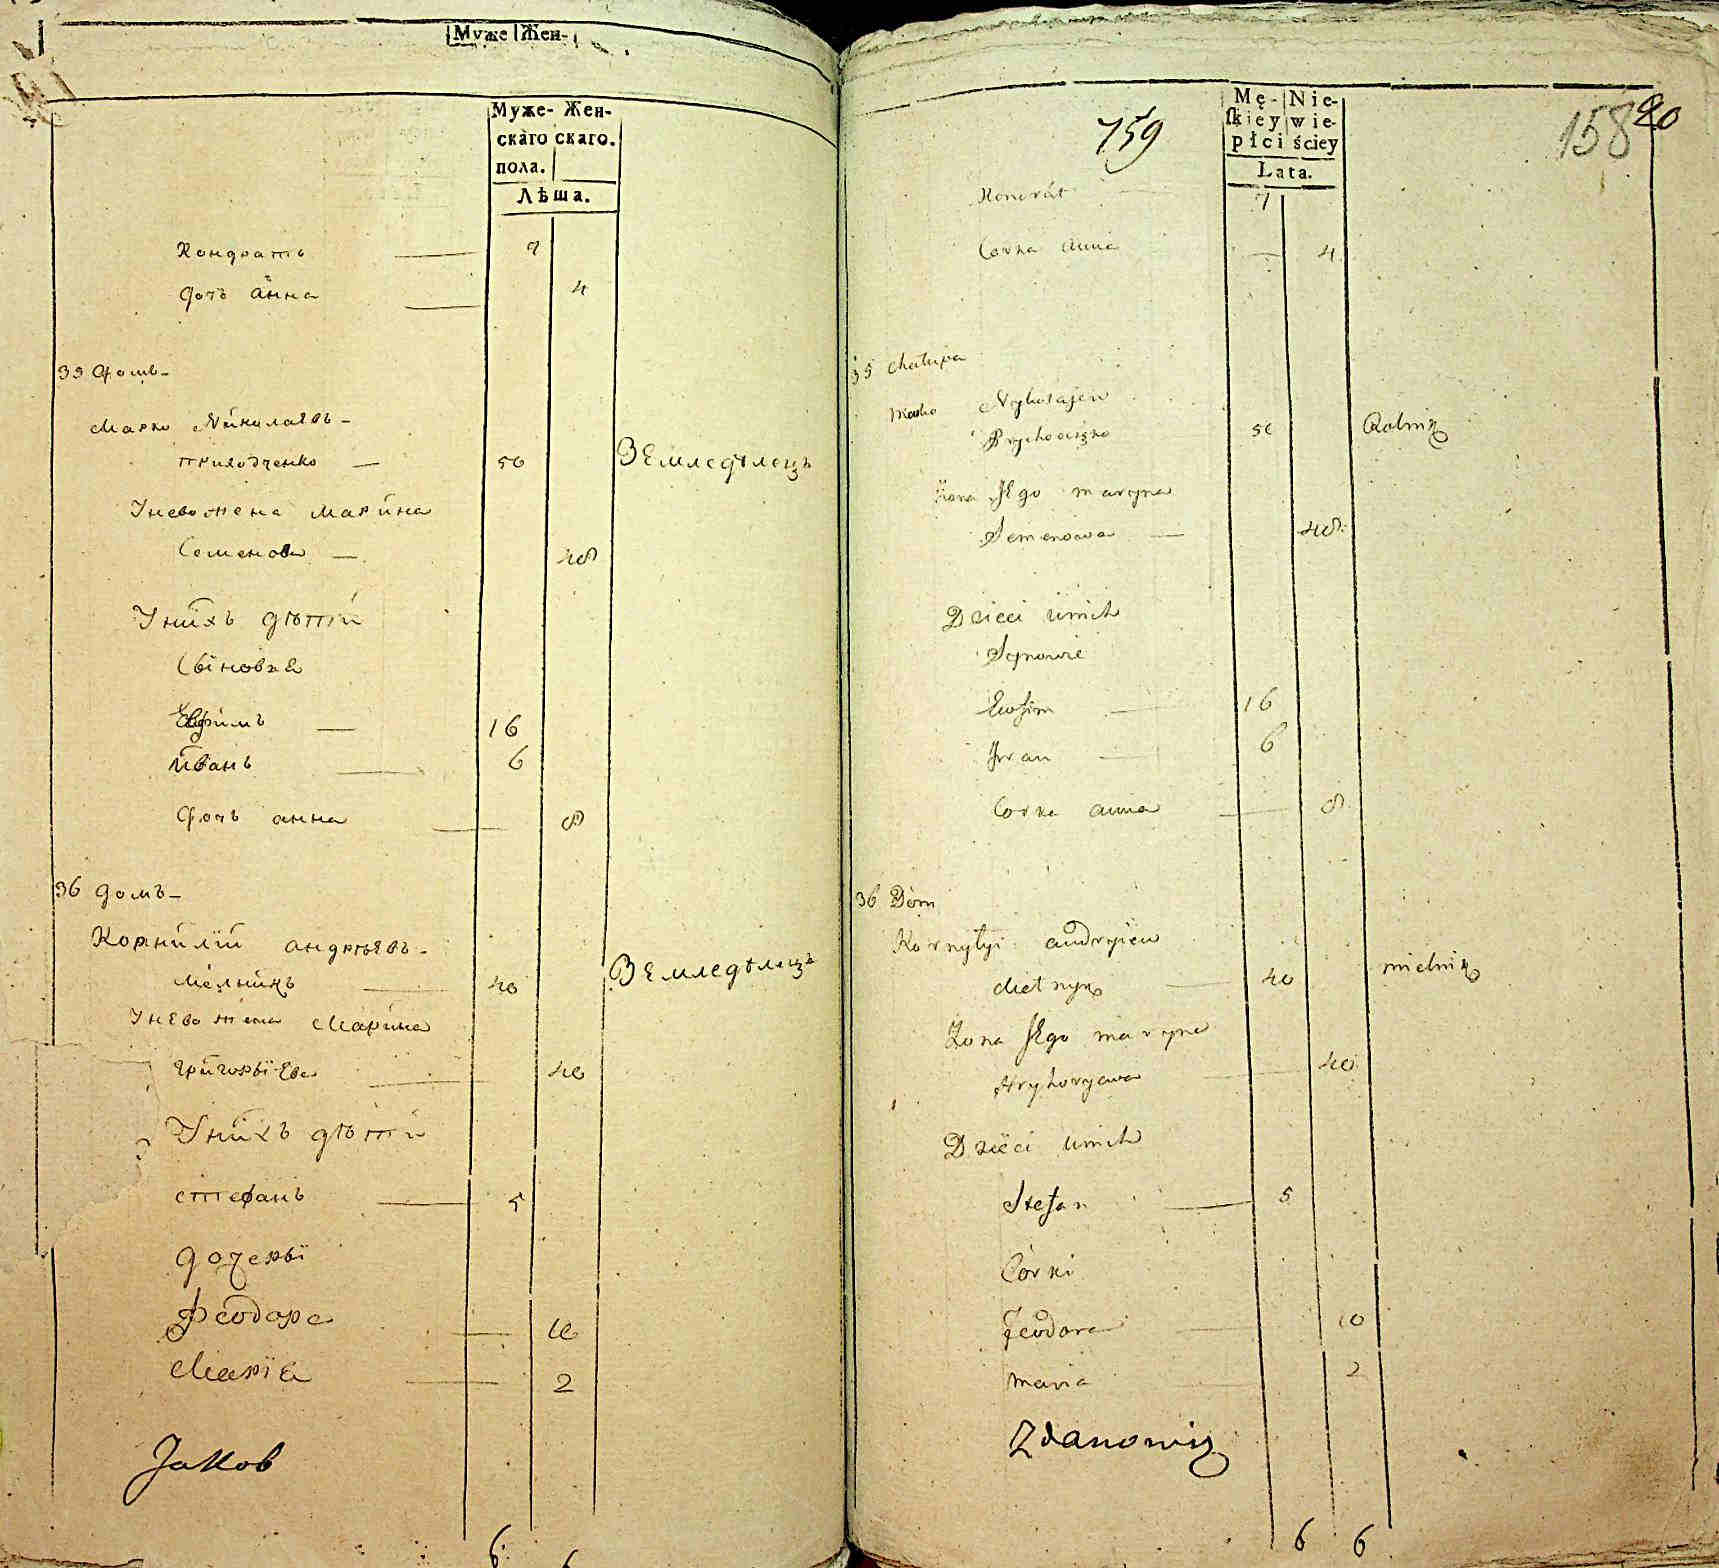 Муже Жен-
Муже- Жен-
скаго скаго.
пола.
Лѣша.
Кондратъ 7
дочъ анна 4
35 домъ-
Марко Николаевъ-
приходченко 50 Земледѣлецъ
У нево жена Марина
Семенова 48
У нихъ дѣти
Сыновья
Евфимъ 16
иванъ 6
дочъ анна 8
36 домъ-
Корнилiй андрѣевъ-
Мелникъ 40 Земледѣлецъ
У нево жена Марина
григорьiева 40
У нихъ дѣти
стефанъ 5
дочерьi
феодора 10
Марiя 2
Jakob
6 6
759
158 20
Mę- Nie-
ſkiey wie-
płci ściey
Lata.
Kondrát 7
Corka Anna 4
35 Chałupa
Marko Nykołajew
Prychodczko 50 Rolnik
Żona Jego maryna
Semenowa 48
Dzieci unich
Synowie
Ewfim 16
Jwan 6
Corka anna 8
36 Dom
Kornyłyi andryiew
Mełnyk 40 mielnik
Żona Jego maryna
Hryhoryewa 40
Dzieci unich
Stefan 5
Córki
Feodora 10
maria 2
Zdanowicz
6 6